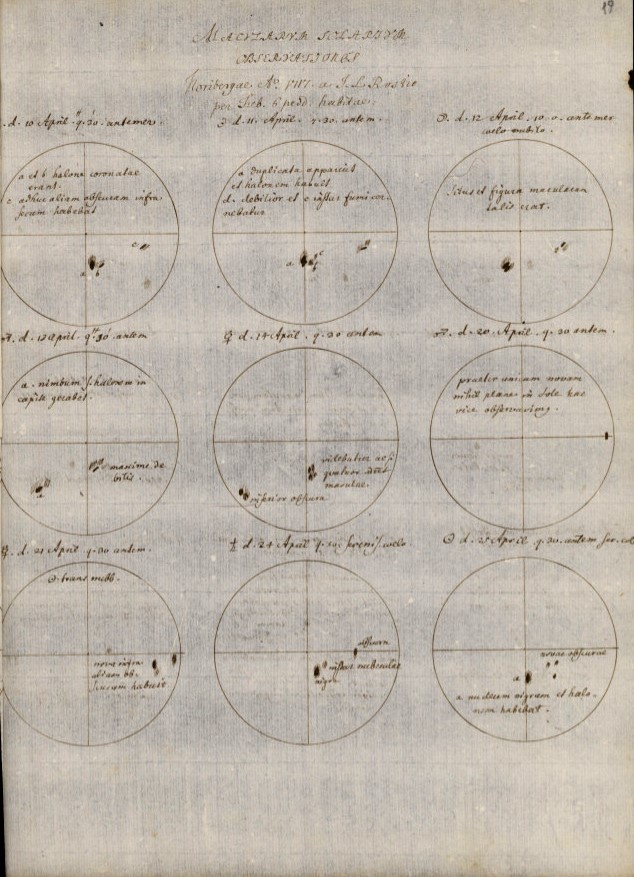 19
MACVLARVM SOLARIVM
OBSERVATIONES
Noribergae Ao. 1717. a I. L. Rostio
per Tub. 6 ped. habitae.
d. 10 April. 9. 30. antemer.
a et b halone coronatae
erant.
c adhuc aliam obscuram infra
secum habebat
c
a b
d. 11. April. 9. 30. antem.
a duplicata apparuit
et halonem habuit
d. debilior et c instar fumi cer-
nebatur
a c
d. 12 April. 10. 0. ante mer
coelo nubilo.
Situs et figura macularum
talis erat.
d. 13 April. 9. 30 antem
a. nimbum s. halonem in
capite gerebat.
maxime de
biles.
a
♀ d. 14 April. 9. 30 antem
videbatur
quatuor
maculae.
inferior obscura
d. 20. April. 9. 30 antem.
praeter unicam novam
nihil plane in Sole hac
vice observavimus.
d. 21 April. 9. 30. antem.
trans nub.
nova nigra
aliam ob-
scuram habuit
♄ d. 24 April. coelo
obscura
instar nubeculae
nigra
☉ d. 25 April. 9. 30. antem
novae obscurae
a
a nucleum nigrum et halo-
nem habebat.